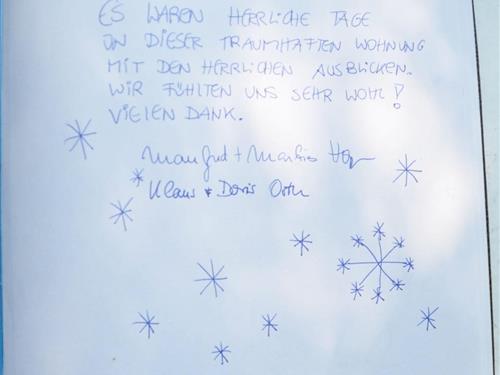 ES WAREN HERRLICHE TAGE
IN DIESER TRAUMHAFTEN WOHNUNG
MIT DEN HERRLICHEN AUSBLICKEN.
WIR FÜHLTEN UNS SEHR WOHL!
VIELEN DANK.
Manfred +
Klaus + Doris